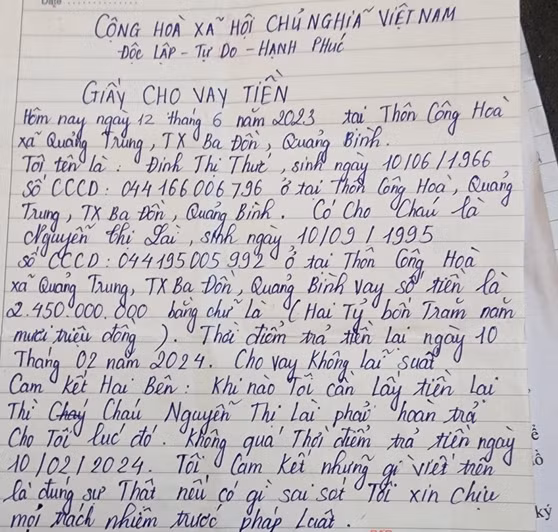 CỘNG HOÀ XÃ HỘI CHỦ NGHĨA VIỆT NAM
ĐỘC LẬP - TỰ DO - HẠNH PHÚC
GIẤY CHO VAY TIỀN
Hôm nay ngày 12 tháng 6 năm 2023 tại Thôn Công Hoà
xã Quảng Trung, TX Ba Đồn, Quảng Bình.
Tôi tên là : Đinh Thị Thuê, sinh ngày 10/06/1966
Số CCCD: 044 166 006 796 ở tại Thôn Công Hoà, Quảng
Trung, TX Ba Đồn, Quảng Bình. Có Cho Cháu là
Nguyễn Thị Lài, sinh ngày 10/09/1995
số CCCD: 044195 005 992 ở tại Thôn Công Hoà
xã Quảng Trung, TX Ba Đồn, Quảng Bình vay số tiền là
2.450.000.000 bằng chữ là (Hai Tỷ bốn Trăm năm
mươi triệu đồng). Thời điểm trả tiền lại ngày 10
Tháng 02 năm 2024. Cho vay Không lãi suất
Cam Kết Hai Bên: Khi nào Tôi cần lấy tiền Lại
Thì Cháu Nguyễn Thị Lài phải hoàn trả
Cho Tôi lúc đó. Không quá Thời điểm trả tiền ngày
10/02/2024. Tôi Cam Kết những gì viết trên
là đúng sự Thật nếu có gì sai sót Tôi xin chịu
mọi trách nhiệm trước pháp Luật.
ký